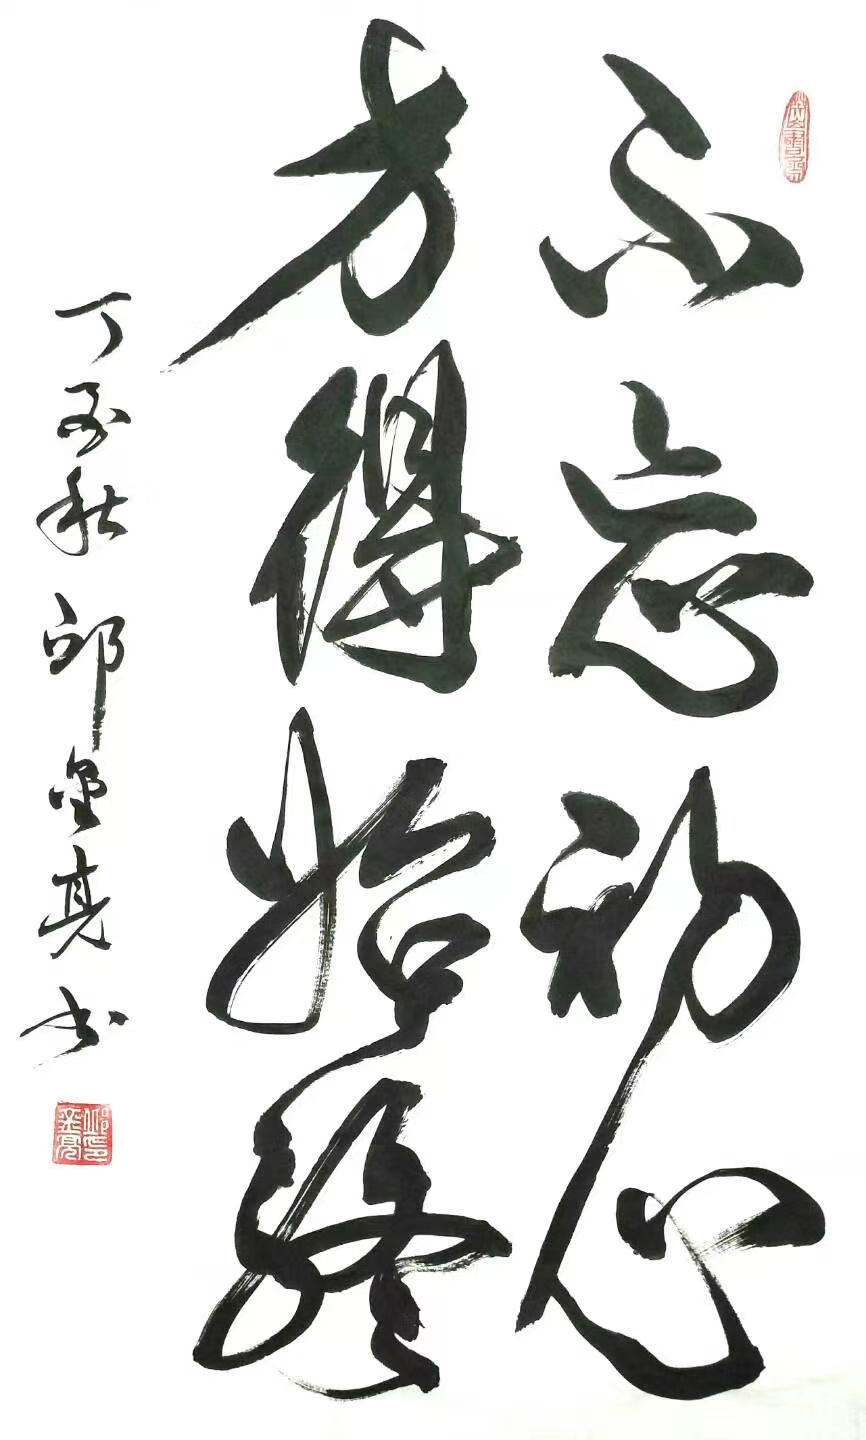 不忘初心
方得始终
丁酉秋 邱金亮书